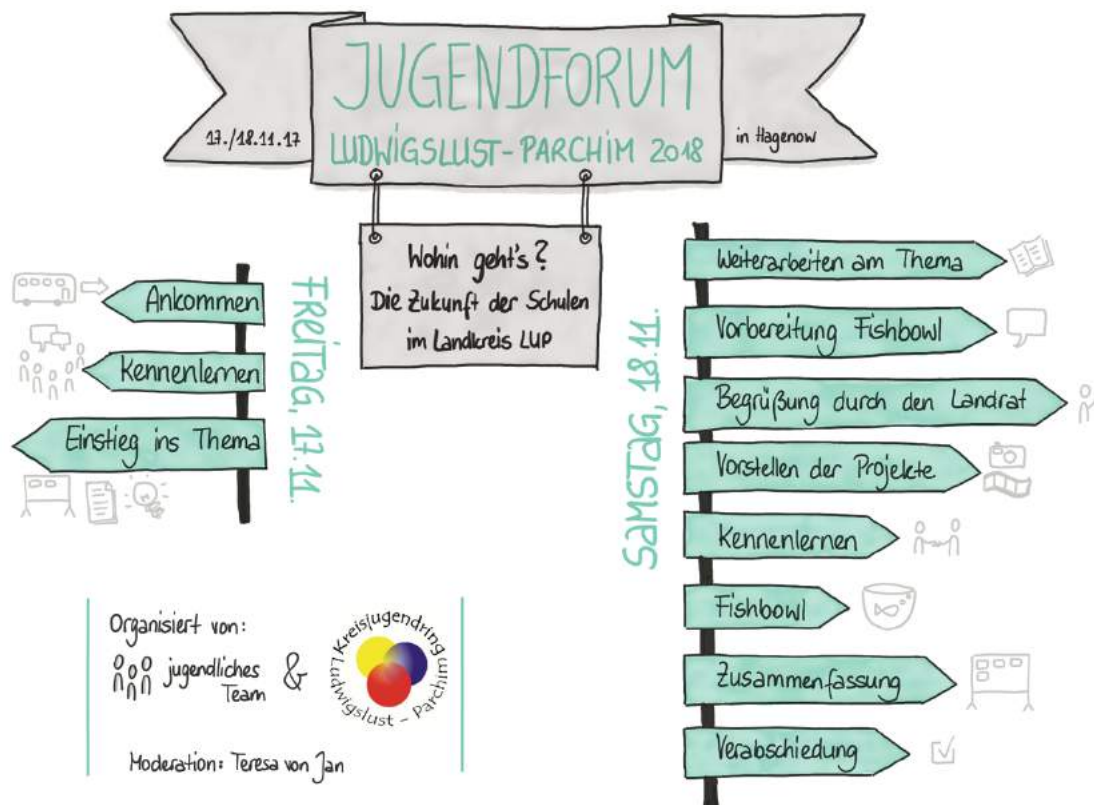 JUGENDFORUM
LUDWIGSLUST-PARCHIM 2018
17./18.11.17
in Hagenow
Wohin geht's?
Die Zukunft der Schulen
im Landkreis LUP
FREITAG, 17.11.
Ankommen
Kennenlernen
Einstieg ins Thema
SAMSTAG, 18.11.
Weiterarbeiten am Thema
Vorbereitung Fishbowl
Begrüßung durch den Landrat
Vorstellen der Projekte
Kennenlernen
Fishbowl
Zusammenfassung
Verabschiedung
Organisiert von:
jugendliches
Team
&
Kreisjugendring
Ludwigslust - Parchim
Moderation: Teresa von Jan